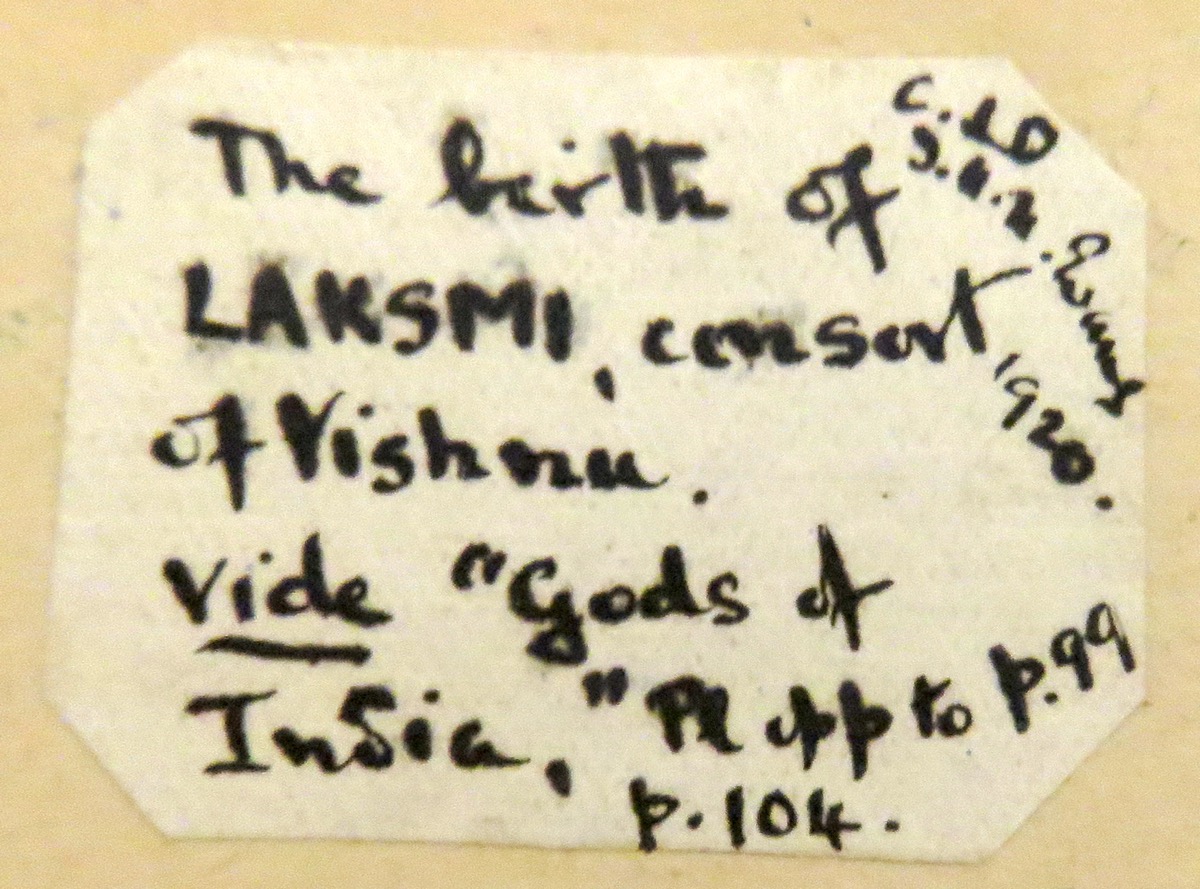 The birth of
LAKSMI, consort
of Vishnu.
Vide "Gods of
India," Pl opp to p.99
p.104.
Evans
1920.